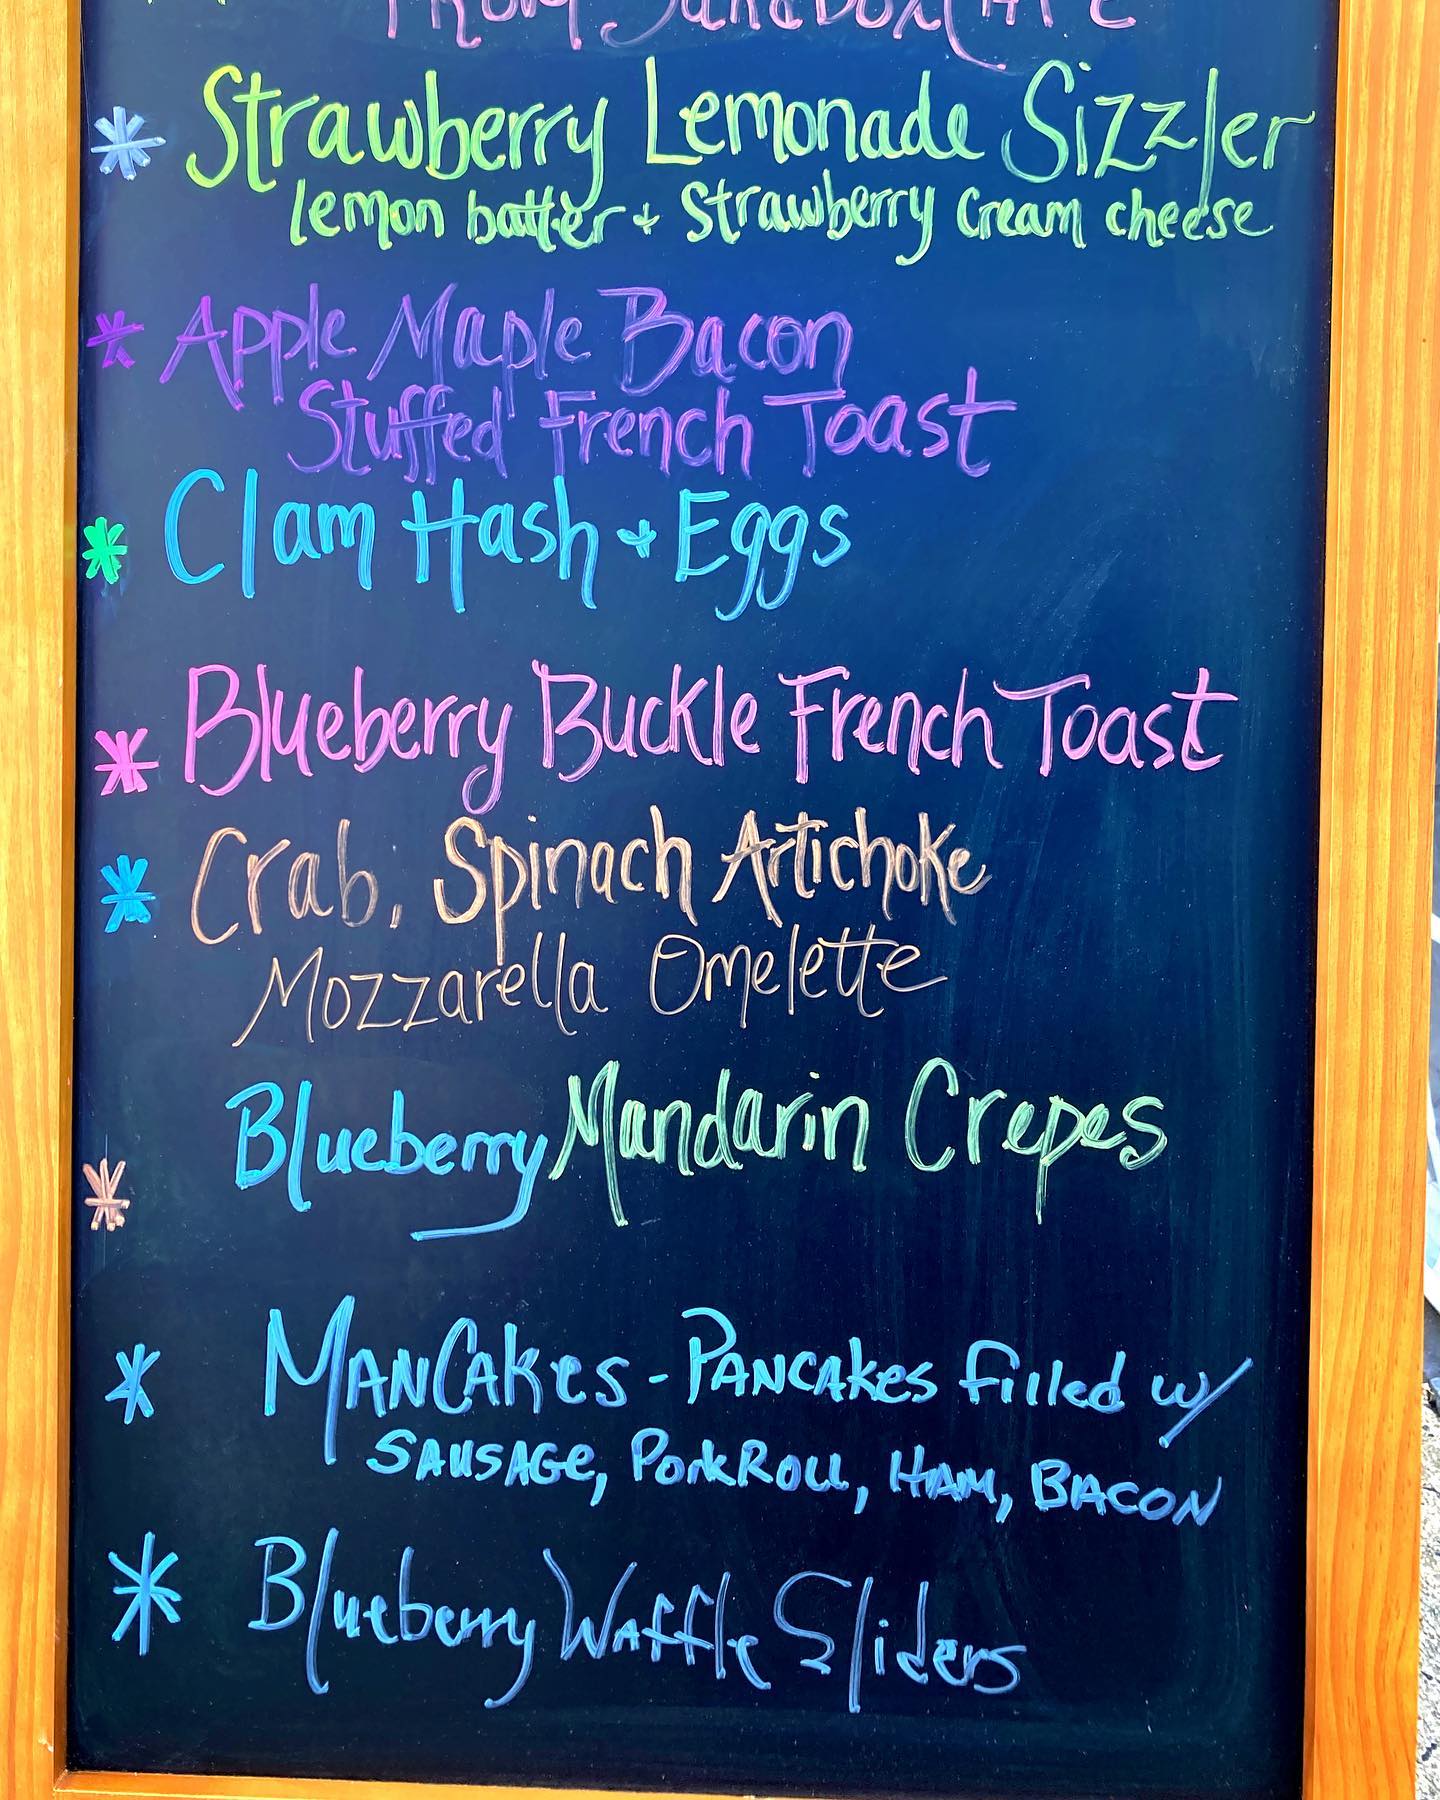 From Sandbox CAFE
* Strawberry Lemonade Sizzler
lemon batter + Strawberry Cream cheese
* Apple Maple Bacon
Stuffed French Toast
* Clam Hash + Eggs
* Blueberry Buckle French Toast
* Crab, Spinach Artichoke
Mozzarella Omelette
* Blueberry Mandarin Crepes
* MANCAKES - PANCAKES filled w/
SAUSAGE, PorkRoll, HAM, BACON
* Blueberry Waffle Sliders